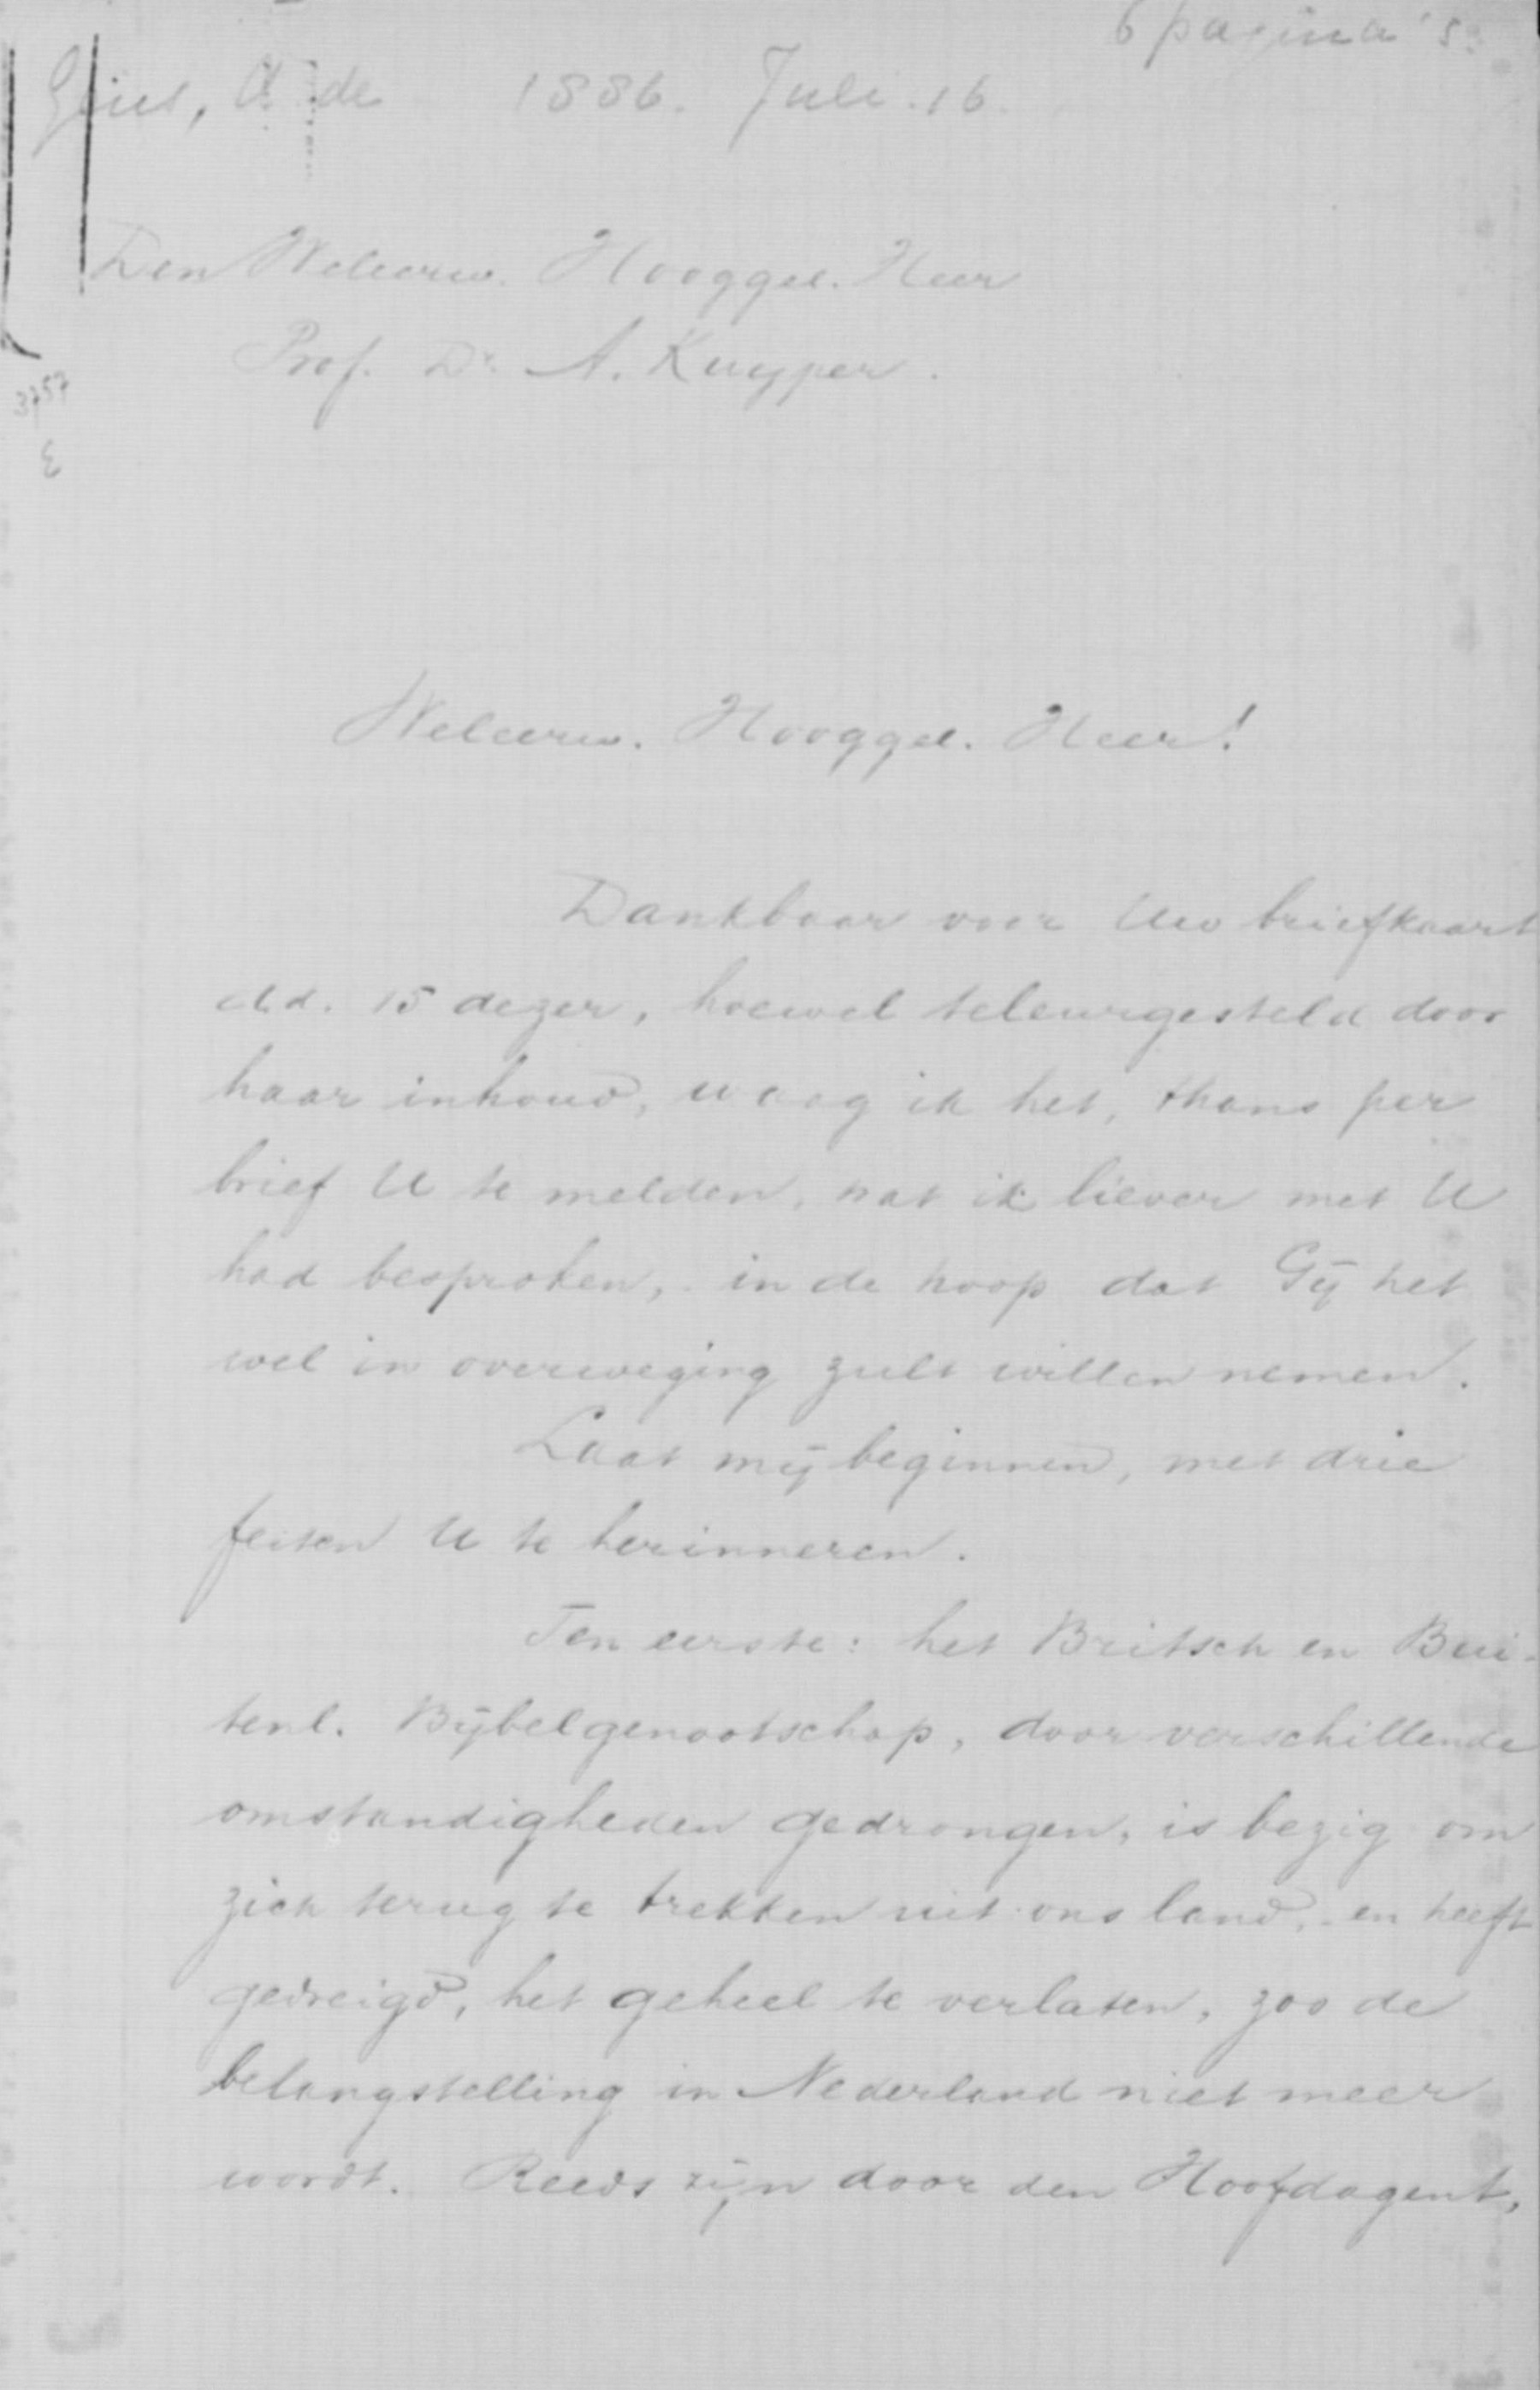 6 pagina's.
de 1886. Juli. 16.
Den Weleerw. Hooggel. Heer
Prof. Dr. A. Kuyper.
3757
Weleerw. Hooggel. Heer!
Dankbaar voor Uw briefkaart
d.d. 15 dezer, hoewel teleurgesteld door
haar inhoud, waag ik het, thans per
brief U te melden, wat ik liever met U
had besproken, in de hoop dat Gij het
wel in overweging zult willen nemen.
Laat mij beginnen, met drie
feiten U te herinneren.
Ten eerste: het Britsch en Bui-
tenl. Bijbelgenootschap, door verschillende
omstandigheden gedrongen, is bezig om
zich terug te trekken uit ons land, en heeft
gedreigd, het geheel te verlaten, zoo de
belangstelling in Nederland niet meer
wordt. Reeds zijn door den Hoofdagent,